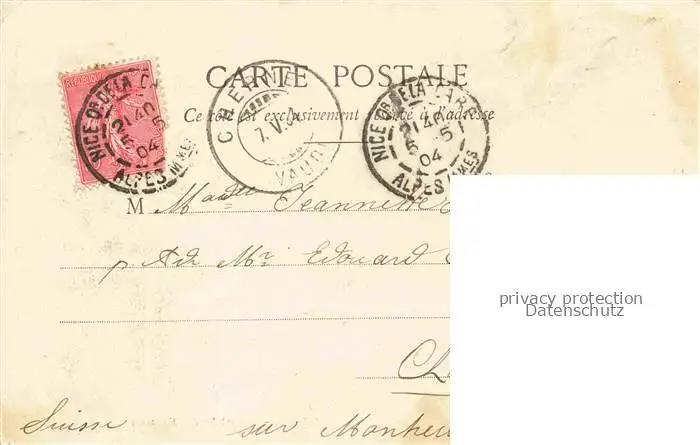 CARTE POSTALE
Ce côté est exclusivement réservé à l'adresse
NICE Qr DE LA GARE
21 40
5 5
04
ALPES MMES
CHERNEX
7.V.04
VAUD
NICE Qr DE LA GARE
21 40
5 5
04
ALPES MMES
M Madlle Jeannette
p. Adr Mr. Edouard
Ch
Suisse sur Montreu
privacy protection
Datenschutz